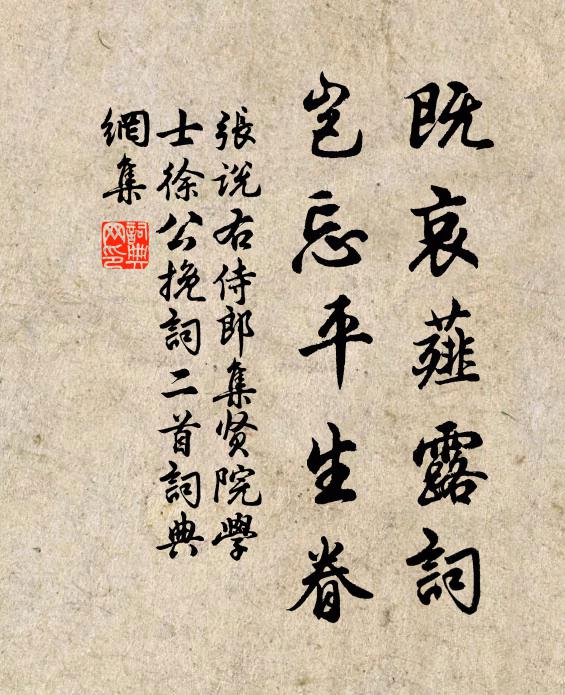 既哀薤露詞
岂忘平生眷
張说右侍郎集贤院學
士徐公挽詞二首詞典
網集
詞典
网印